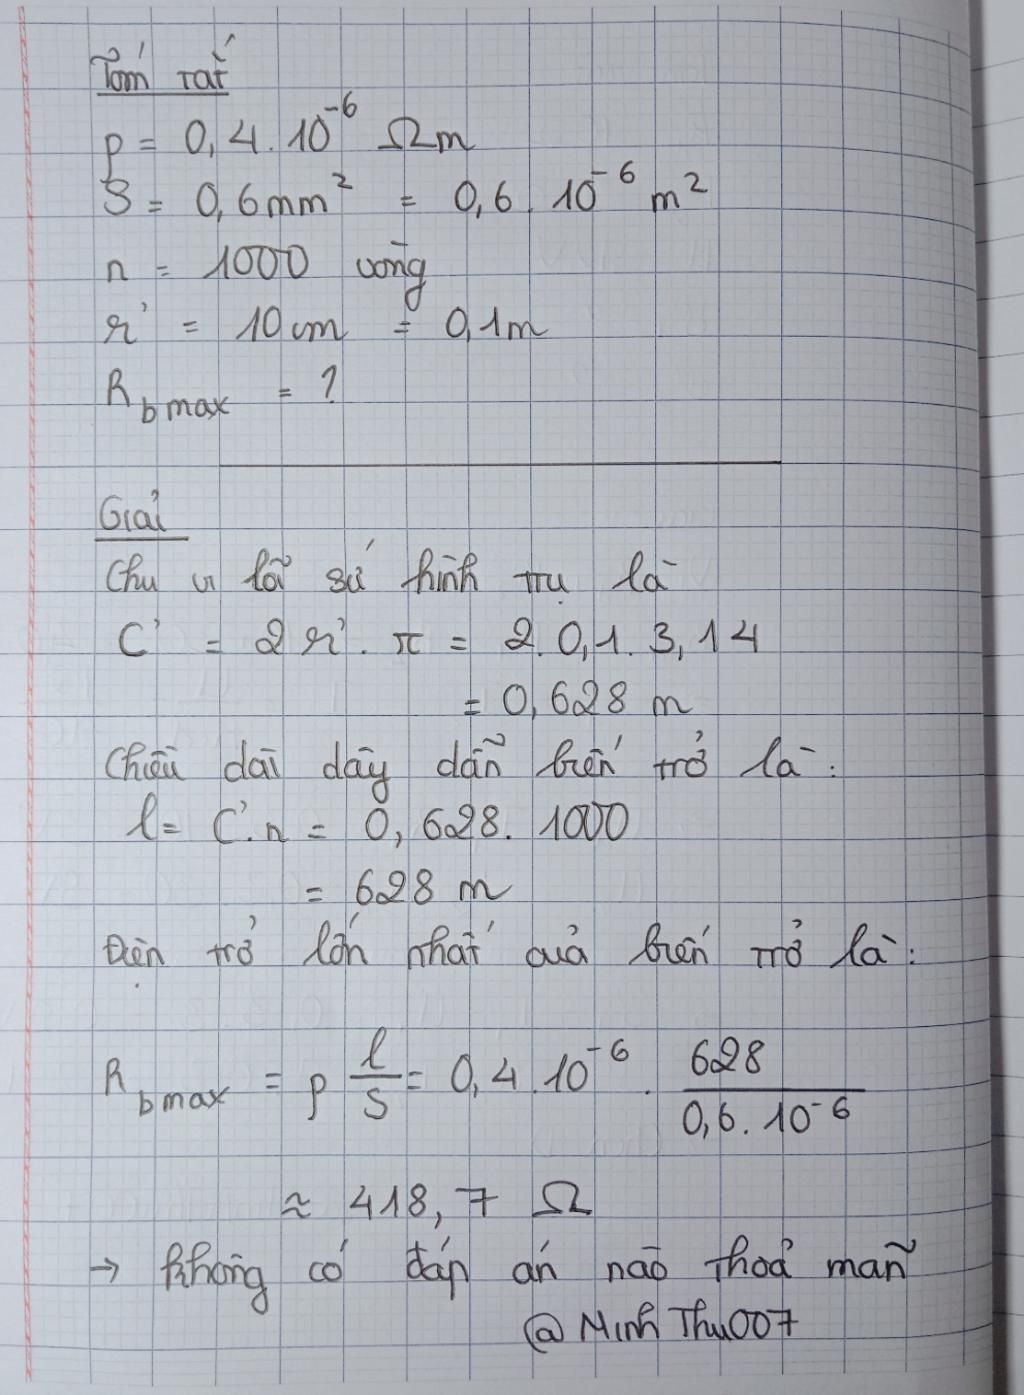 Tóm tắt
ρ = 0,4.10⁻⁶ Ωm
S = 0,6mm² = 0,6.10⁻⁶ m²
n = 1000 vòng
r' = 10cm = 0,1m
R_bmax = ?
Giải
Chu vi lõi sứ hình trụ là
C' = 2r'.π = 2.0,1.3,14
= 0,628 m
Chiều dài dây dẫn biến trở là:
l = C'.n = 0,628.1000
= 628 m
Điện trở lớn nhất của biến trở là:
R_bmax = ρ l/S = 0,4.10⁻⁶. 628/(0,6.10⁻⁶)
≈ 418,7 Ω
→ Không có đáp án nào thoả mãn
@Minh Thu007